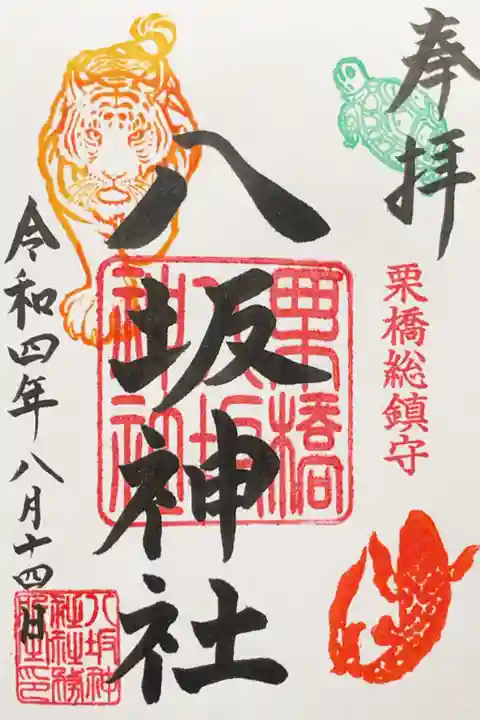 奉拝
栗橋総鎮守
八坂神社
栗橋
八坂
神社
令和四年八月十四日
八坂神
社社務
所之印